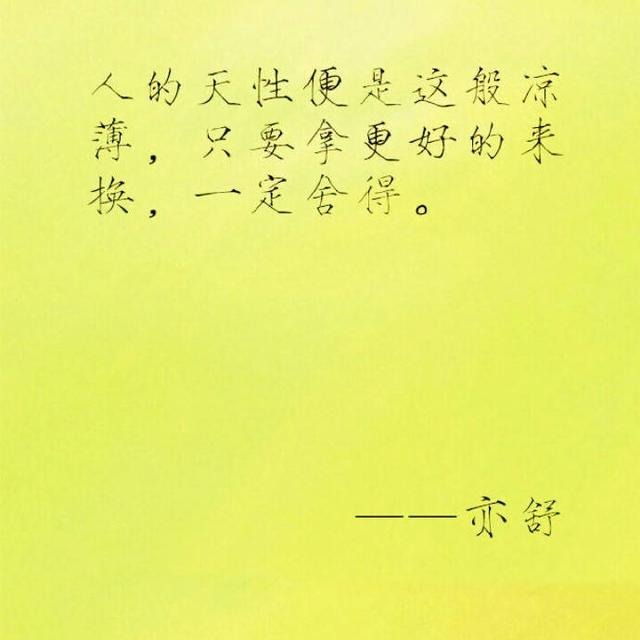 人的天性便是这般凉
薄，只要拿更好的来
换，一定舍得。
——亦舒